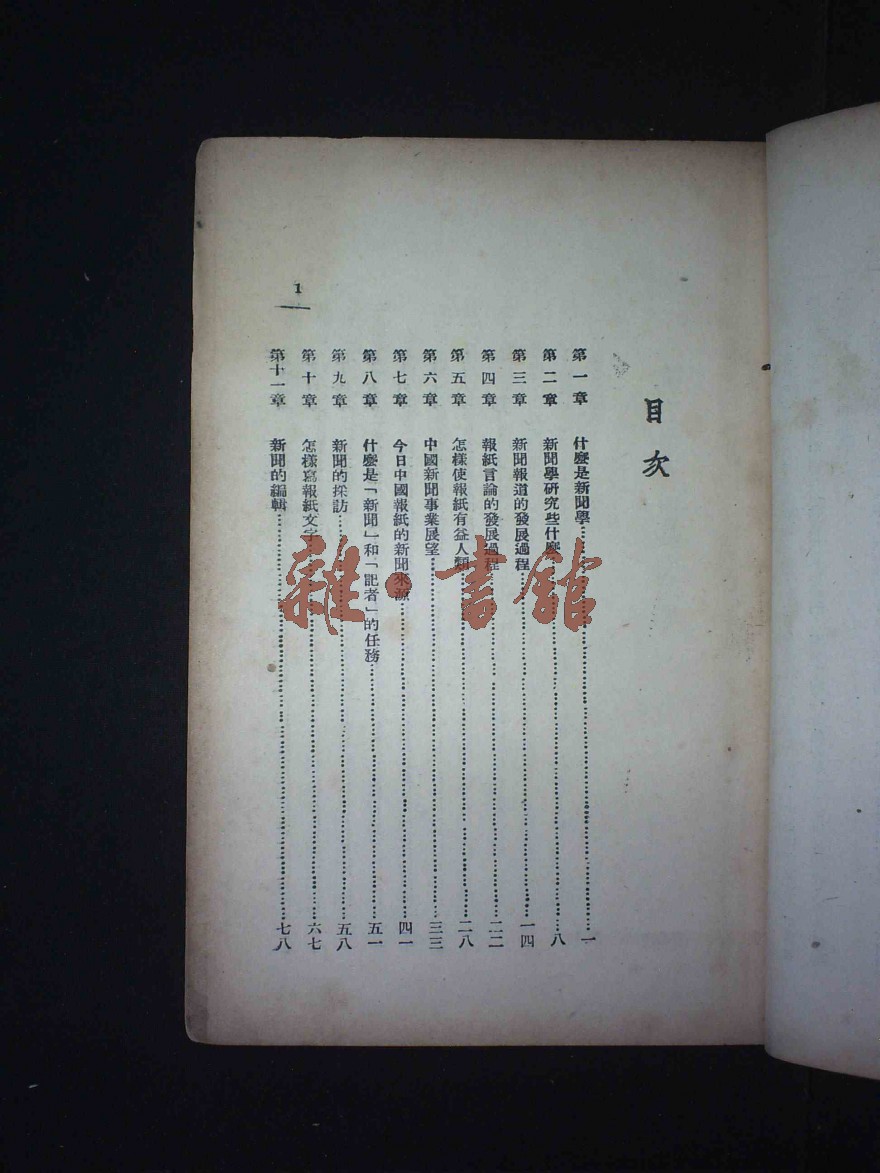 目次
第一章 什麼是新聞學……一
第二章 新聞學研究些什麼……八
第三章 新聞報道的發展過程……一四
第四章 報紙言論的發展過程……二二
第五章 怎樣使報紙有益人類……二八
第六章 中國新聞事業展望……三三
第七章 今日中國報紙的新聞來源……四一
第八章 什麼是「新聞」和「記者」的任務……五一
第九章 新聞的採訪……五八
第十章 怎樣寫報紙文字……六七
第十一章 新聞的編輯……七八
1
雜·書館